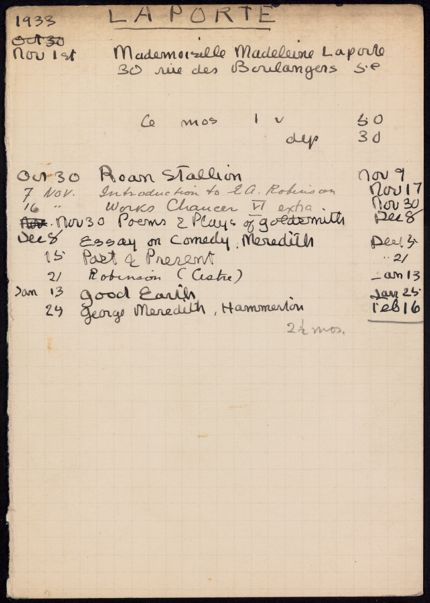 LAPORTE
1933
Oct 30
Nov 1st Mademoiselle Madeleine Laporte
30 rue des Boulangers 5e
6 mos 1 v 50
dep 30
Oct 30 Roan Stallion Nov 9
7 Nov. Introduction to E.A. Robinson Nov 17
16 " Works Chaucer VI extra. Nov 30
Nov. Nov 30 Poems & Plays of Goldsmith Dec 8
Dec 8 Essay on Comedy, Meredith Dec 15
15 Past & Present " 21
21 Robinson (Cestre) Jan 13
Jan 13 Good Earth Jan 25
25 George Meredith, Hammerton Feb 16
2½ mos.